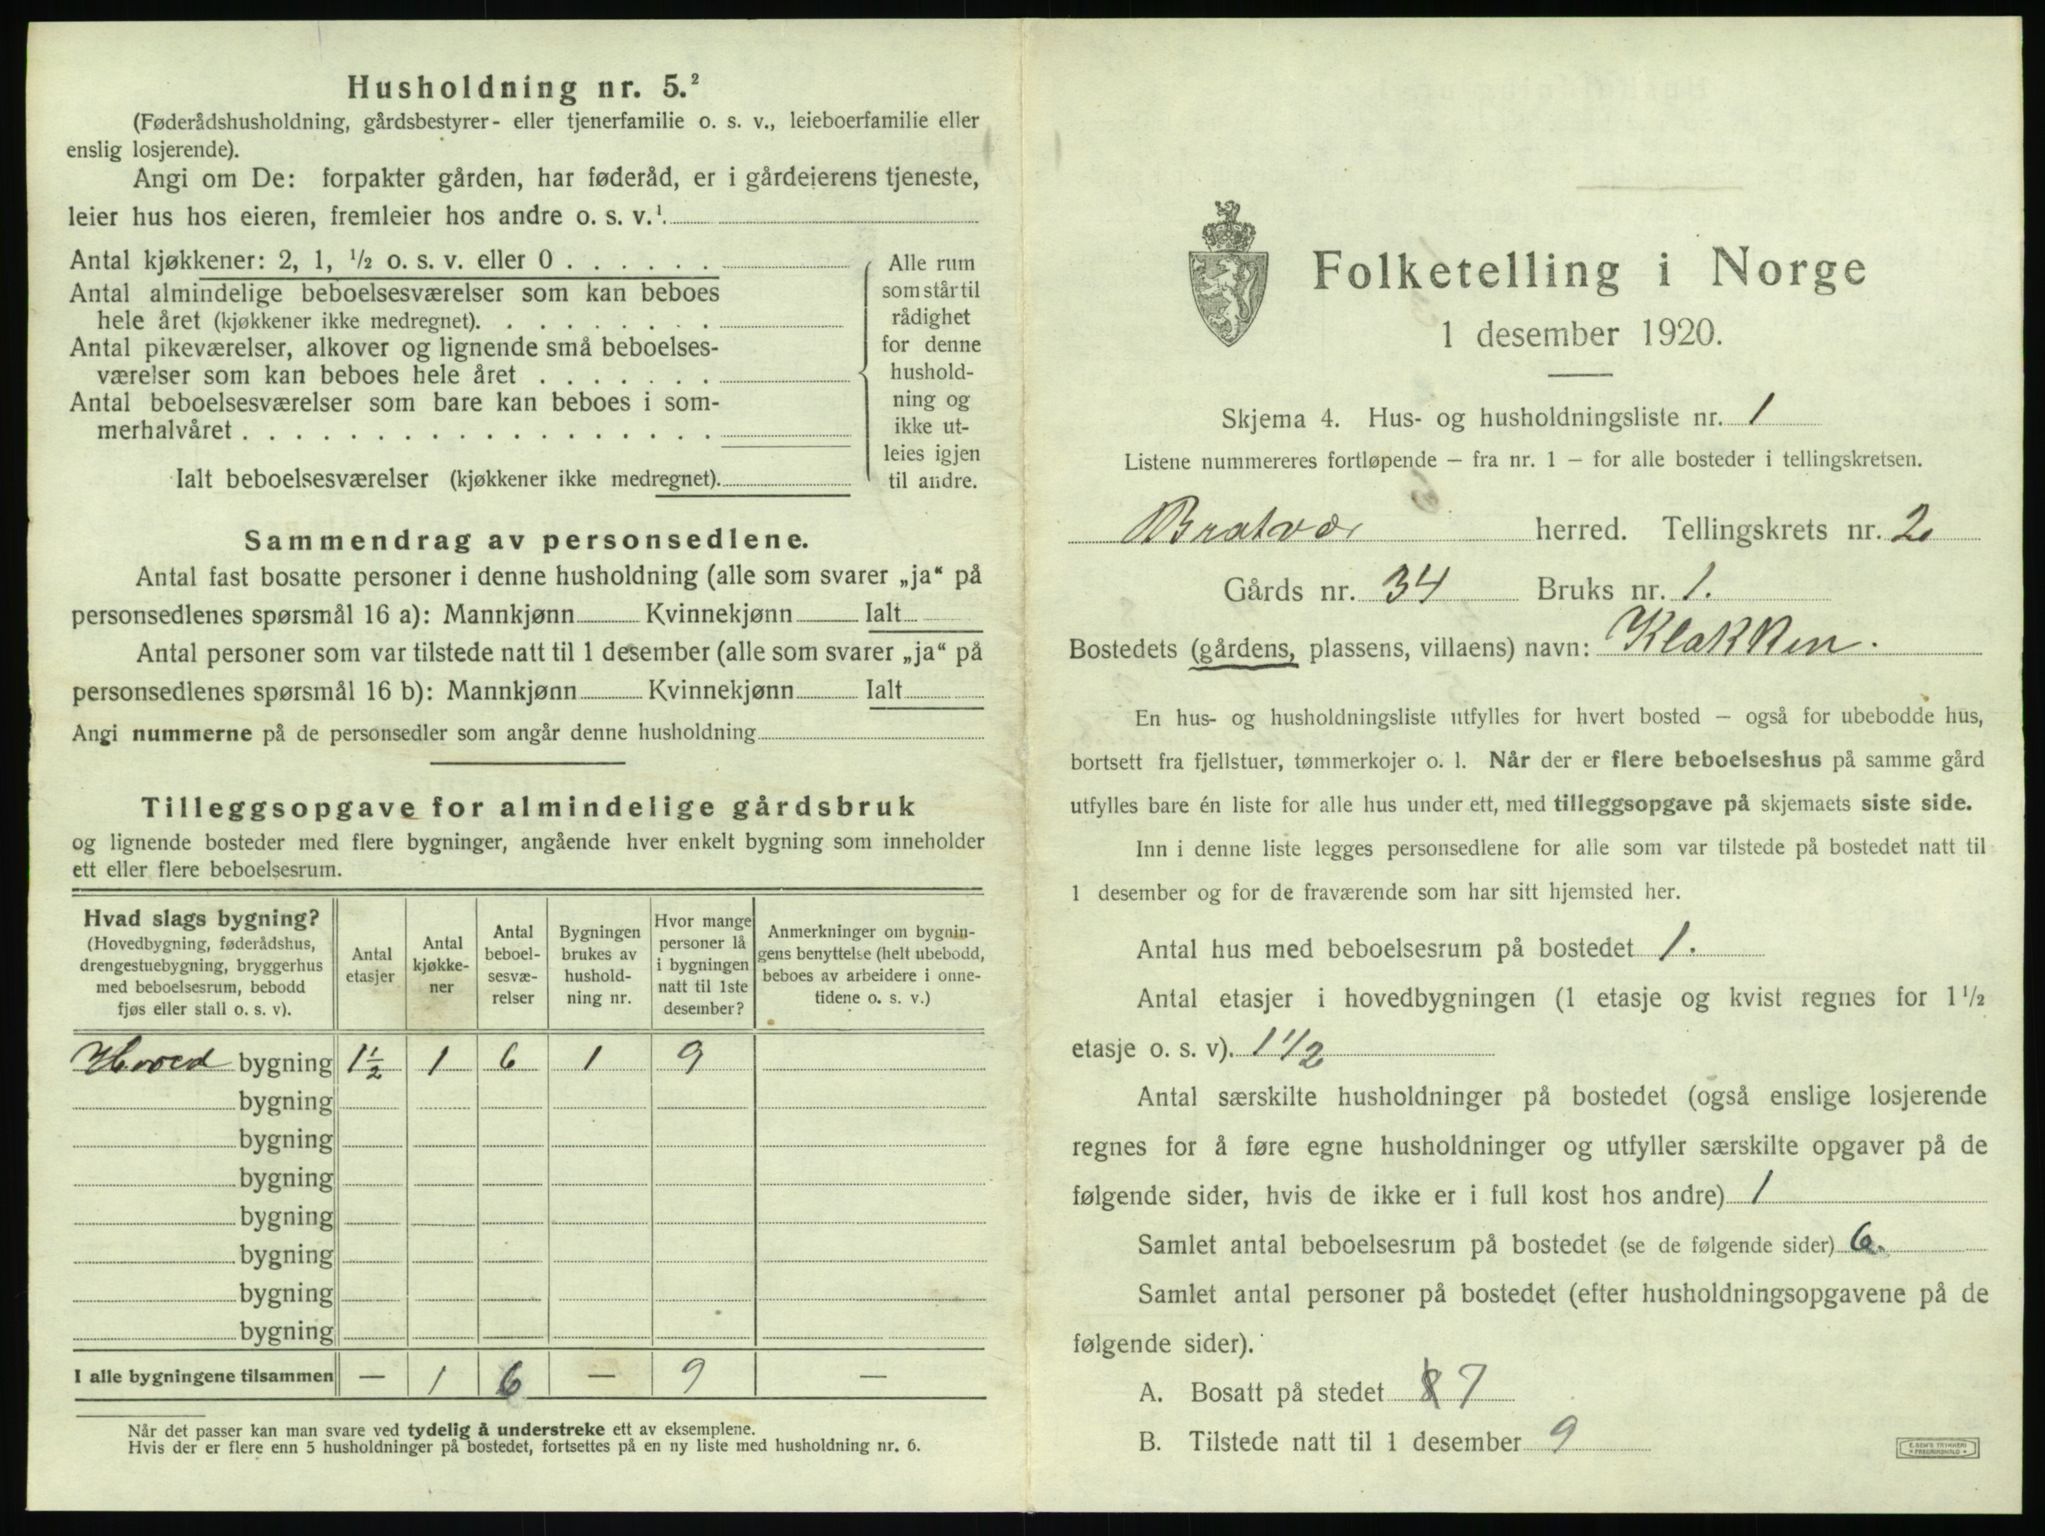 Husholdning nr. 5.²
(Føderådshusholdning, gårdsbestyrer- eller tjenerfamilie o. s. v., leieboerfamilie eller
enslig losjerende).
Angi om De: forpakter gården, har føderåd, er i gårdeierens tjeneste,
leier hus hos eieren, fremleier hos andre o. s. v.¹
Antal kjøkkener: 2, 1, ½ o. s. v. eller 0 . . . . . .
Antal almindelige beboelsesværelser som kan beboes
hele året (kjøkkener ikke medregnet). . . . . . . . .
Antal pikeværelser, alkover og lignende små beboelses-
værelser som kan beboes hele året . . . . . . .
Antal beboelsesværelser som bare kan beboes i som-
merhalvåret . . . . . . . . . . . . . . . . . .
Ialt beboelsesværelser (kjøkkener ikke medregnet).
Alle rum
som står til
rådighet
for denne
hushold-
ning og
ikke ut-
leies igjen
til andre.
Sammendrag av personsedlene.
Antal fast bosatte personer i denne husholdning (alle som svarer „ja“ på
personsedlenes spørsmål 16 a): Mannkjønn Kvinnekjønn Ialt
Antal personer som var tilstede natt til 1 desember (alle som svarer „ja“ på
personsedlenes spørsmål 16 b): Mannkjønn Kvinnekjønn Ialt
Angi nummerne på de personsedler som angår denne husholdning
Tilleggsopgave for almindelige gårdsbruk
og lignende bosteder med flere bygninger, angående hver enkelt bygning som inneholder
ett eller flere beboelsesrum.
Hvad slags bygning?
(Hovedbygning, føderådshus,
drengestuebygning, bryggerhus
med beboelsesrum, bebodd
fjøs eller stall o. s. v).
Antal
etasjer
Antal
kjøkke-
ner
Antal
beboel-
sesvæ-
relser
Bygningen
brukes av
hushold-
ning nr.
Hvor mange
personer lå
i bygningen
natt til 1ste
desember?
Anmerkninger om bygnin-
gens benyttelse (helt ubebodd,
beboes av arbeidere i onne-
tidene o. s. v.)
Hoved bygning 1½ 1 6 1 9
bygning
bygning
bygning
bygning
bygning
bygning
bygning
I alle bygningene tilsammen — 1 6 — 9 —
Når det passer kan man svare ved tydelig å understreke ett av eksemplene.
Hvis der er flere enn 5 husholdninger på bostedet, fortsettes på en ny liste med husholdning nr. 6.
Folketelling i Norge
1 desember 1920.
Skjema 4. Hus- og husholdningsliste nr. 1
Listene nummereres fortløpende — fra nr. 1 — for alle bosteder i tellingskretsen.
Bratvær herred. Tellingskrets nr. 2
Gårds nr. 34 Bruks nr. 1.
Bostedets (gårdens, plassens, villaens) navn: Klakken.
En hus- og husholdningsliste utfylles for hvert bosted — også for ubebodde hus,
bortsett fra fjellstuer, tømmerkojer o. l. Når der er flere beboelseshus på samme gård
utfylles bare én liste for alle hus under ett, med tilleggsopgave på skjemaets siste side.
Inn i denne liste legges personsedlene for alle som var tilstede på bostedet natt til
1 desember og for de fraværende som har sitt hjemsted her.
Antal hus med beboelsesrum på bostedet 1.
Antal etasjer i hovedbygningen (1 etasje og kvist regnes for 1½
etasje o. s. v). 1½
Antal særskilte husholdninger på bostedet (også enslige losjerende
regnes for å føre egne husholdninger og utfyller særskilte opgaver på de
følgende sider, hvis de ikke er i full kost hos andre) 1
Samlet antal beboelsesrum på bostedet (se de følgende sider) 6.
Samlet antal personer på bostedet (efter husholdningsopgavene på de
følgende sider).
A. Bosatt på stedet 7
B. Tilstede natt til 1 desember 9